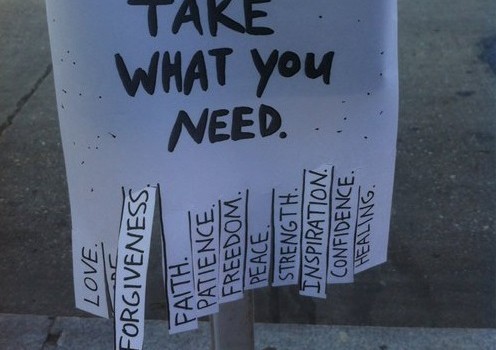 TAKE
WHAT YOU
NEED.
LOVE.
FORGIVENESS.
FAITH.
PATIENCE.
FREEDOM.
PEACE.
STRENGTH.
INSPIRATION.
CONFIDENCE.
HEALING.